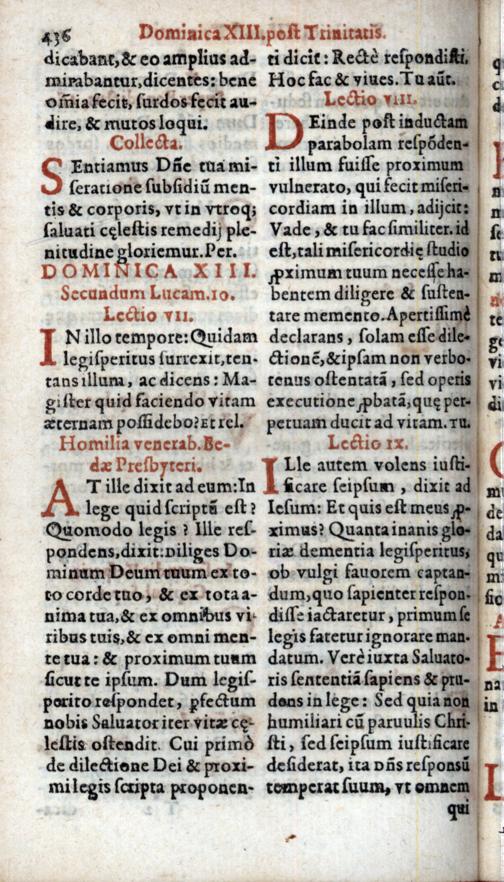 436
Dominica XIII. post Trinitatis.
dicabant, & eo amplius ad-
mirabantur, dicentes: bene
oĩnia fecit, surdos fecit au-
dire, & mutos loqui.
Collecta.
SEntiamus Dñe tua mi-
seratione subsidiũ men-
tis & corporis, vt in vtroq;
saluati cęlestis remedij ple-
nitudine gloriemur. Per.
DOMINICA XIII.
Secundum Lucam. 10.
Lectio VII.
IN illo tempore: Quidam
legisperitus surrexit, ten-
tans illum, ac dicens: Ma-
gister quid faciendo vitam
æternam possidebo? Et rel.
Homilia venerab. Be-
dæ Presbyteri.
AT ille dixit ad eum: In
lege quid scriptũ est?
Quomodo legis? Ille res-
pondens, dixit: Diliges Do-
minum Deum tuum ex to-
to corde tuo, & ex tota a-
nima tua, & ex omnibus vi-
ribus tuis, & ex omni men-
te tua: & proximum tuum
sicut te ipsum. Dum legis-
perito respondet, ꝑfectum
nobis Saluator iter vitæ cę-
lestis ostendit. Cui primò
de dilectione Dei & proxi-
mi legis scripta proponen-
ti dicit: Rectè respondisti.
Hoc fac & viues. Tu aũt.
Lectio VIII.
DEinde post inductam
parabolam respõden-
ti illum fuisse proximum
vulnerato, qui fecit miseri-
cordiam in illum, adijcit:
Vade, & tu fac similiter. id
est, tali misericordię studio
ꝓximum tuum necesse ha-
bentem diligere & susten-
tare memento. Apertissimè
declarans, solam esse dile-
ctionẽ, & ipsam non verbo-
tenus ostentatã, sed operis
executione ꝓbatã, quę per-
petuam ducit ad vitam. Tu.
Lectio IX.
ILle autem volens iusti-
ficare seipsum, dixit ad
Iesum: Et quis est meus ꝓ-
ximus? Quanta inanis glo-
riæ dementia legisperitus,
ob vulgi fauorem captan-
dum, quo sapienter respon-
disse iactaretur, primum se
legis fatetur ignorare man-
datum. Verè iuxta Saluato-
ris sententiã sapiens & pru-
dens in lege: Sed quia non
humiliari cũ paruulis Chri-
sti, sed seipsum iustificare
desiderat, ita dñs responsũ
temperat suum, vt omnem
qui